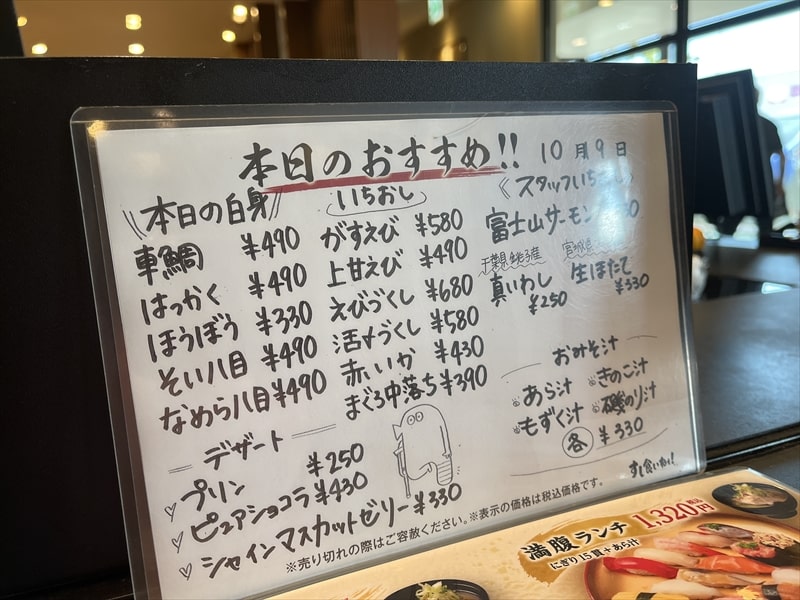 本日のおすすめ!!
10月9日
本日の白身
車鯛 ¥490
はっかく ¥490
ほうぼう ¥330
そい八目 ¥490
なめら八目 ¥490
いちおし
がすえび ¥580
上甘えび ¥490
えびづくし ¥680
活〆づくし ¥580
赤いか ¥430
まぐろ中落ち ¥390
《スタッフいちおし
富士山サーモン
千葉県銚子産
真いわし
¥250
宮城県
生ほたて
¥330
おみそ汁
あら汁
きのこ汁
もずく汁
磯のり汁
各 ¥330
デザート
プリン ¥250
ピュアショコラ ¥430
シャインマスカットゼリー ¥330
すし食いねぇ!
※売り切れの際はご容赦ください。※表示の価格は税込価格です。
満腹ランチ 1,320円
にぎり15貫+あら汁